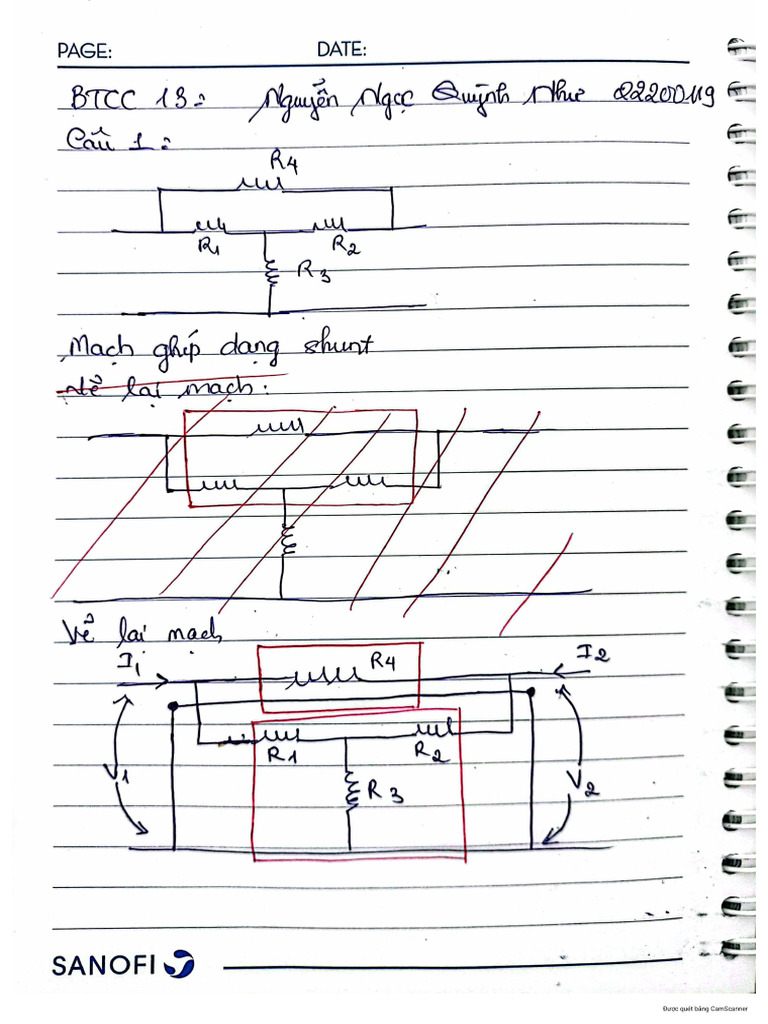 PAGE: DATE:
BTCC 13: Nguyễn Ngọc Quỳnh Như 22200119
Câu 1:
R4
R1 R2
R3
Mạch ghép dạng shunt
Vẽ lại mạch:
Vẽ lại mạch
I1 R4 I2
R1 R2
V1 R3 V2
SANOFI
Được quét bằng CamScanner